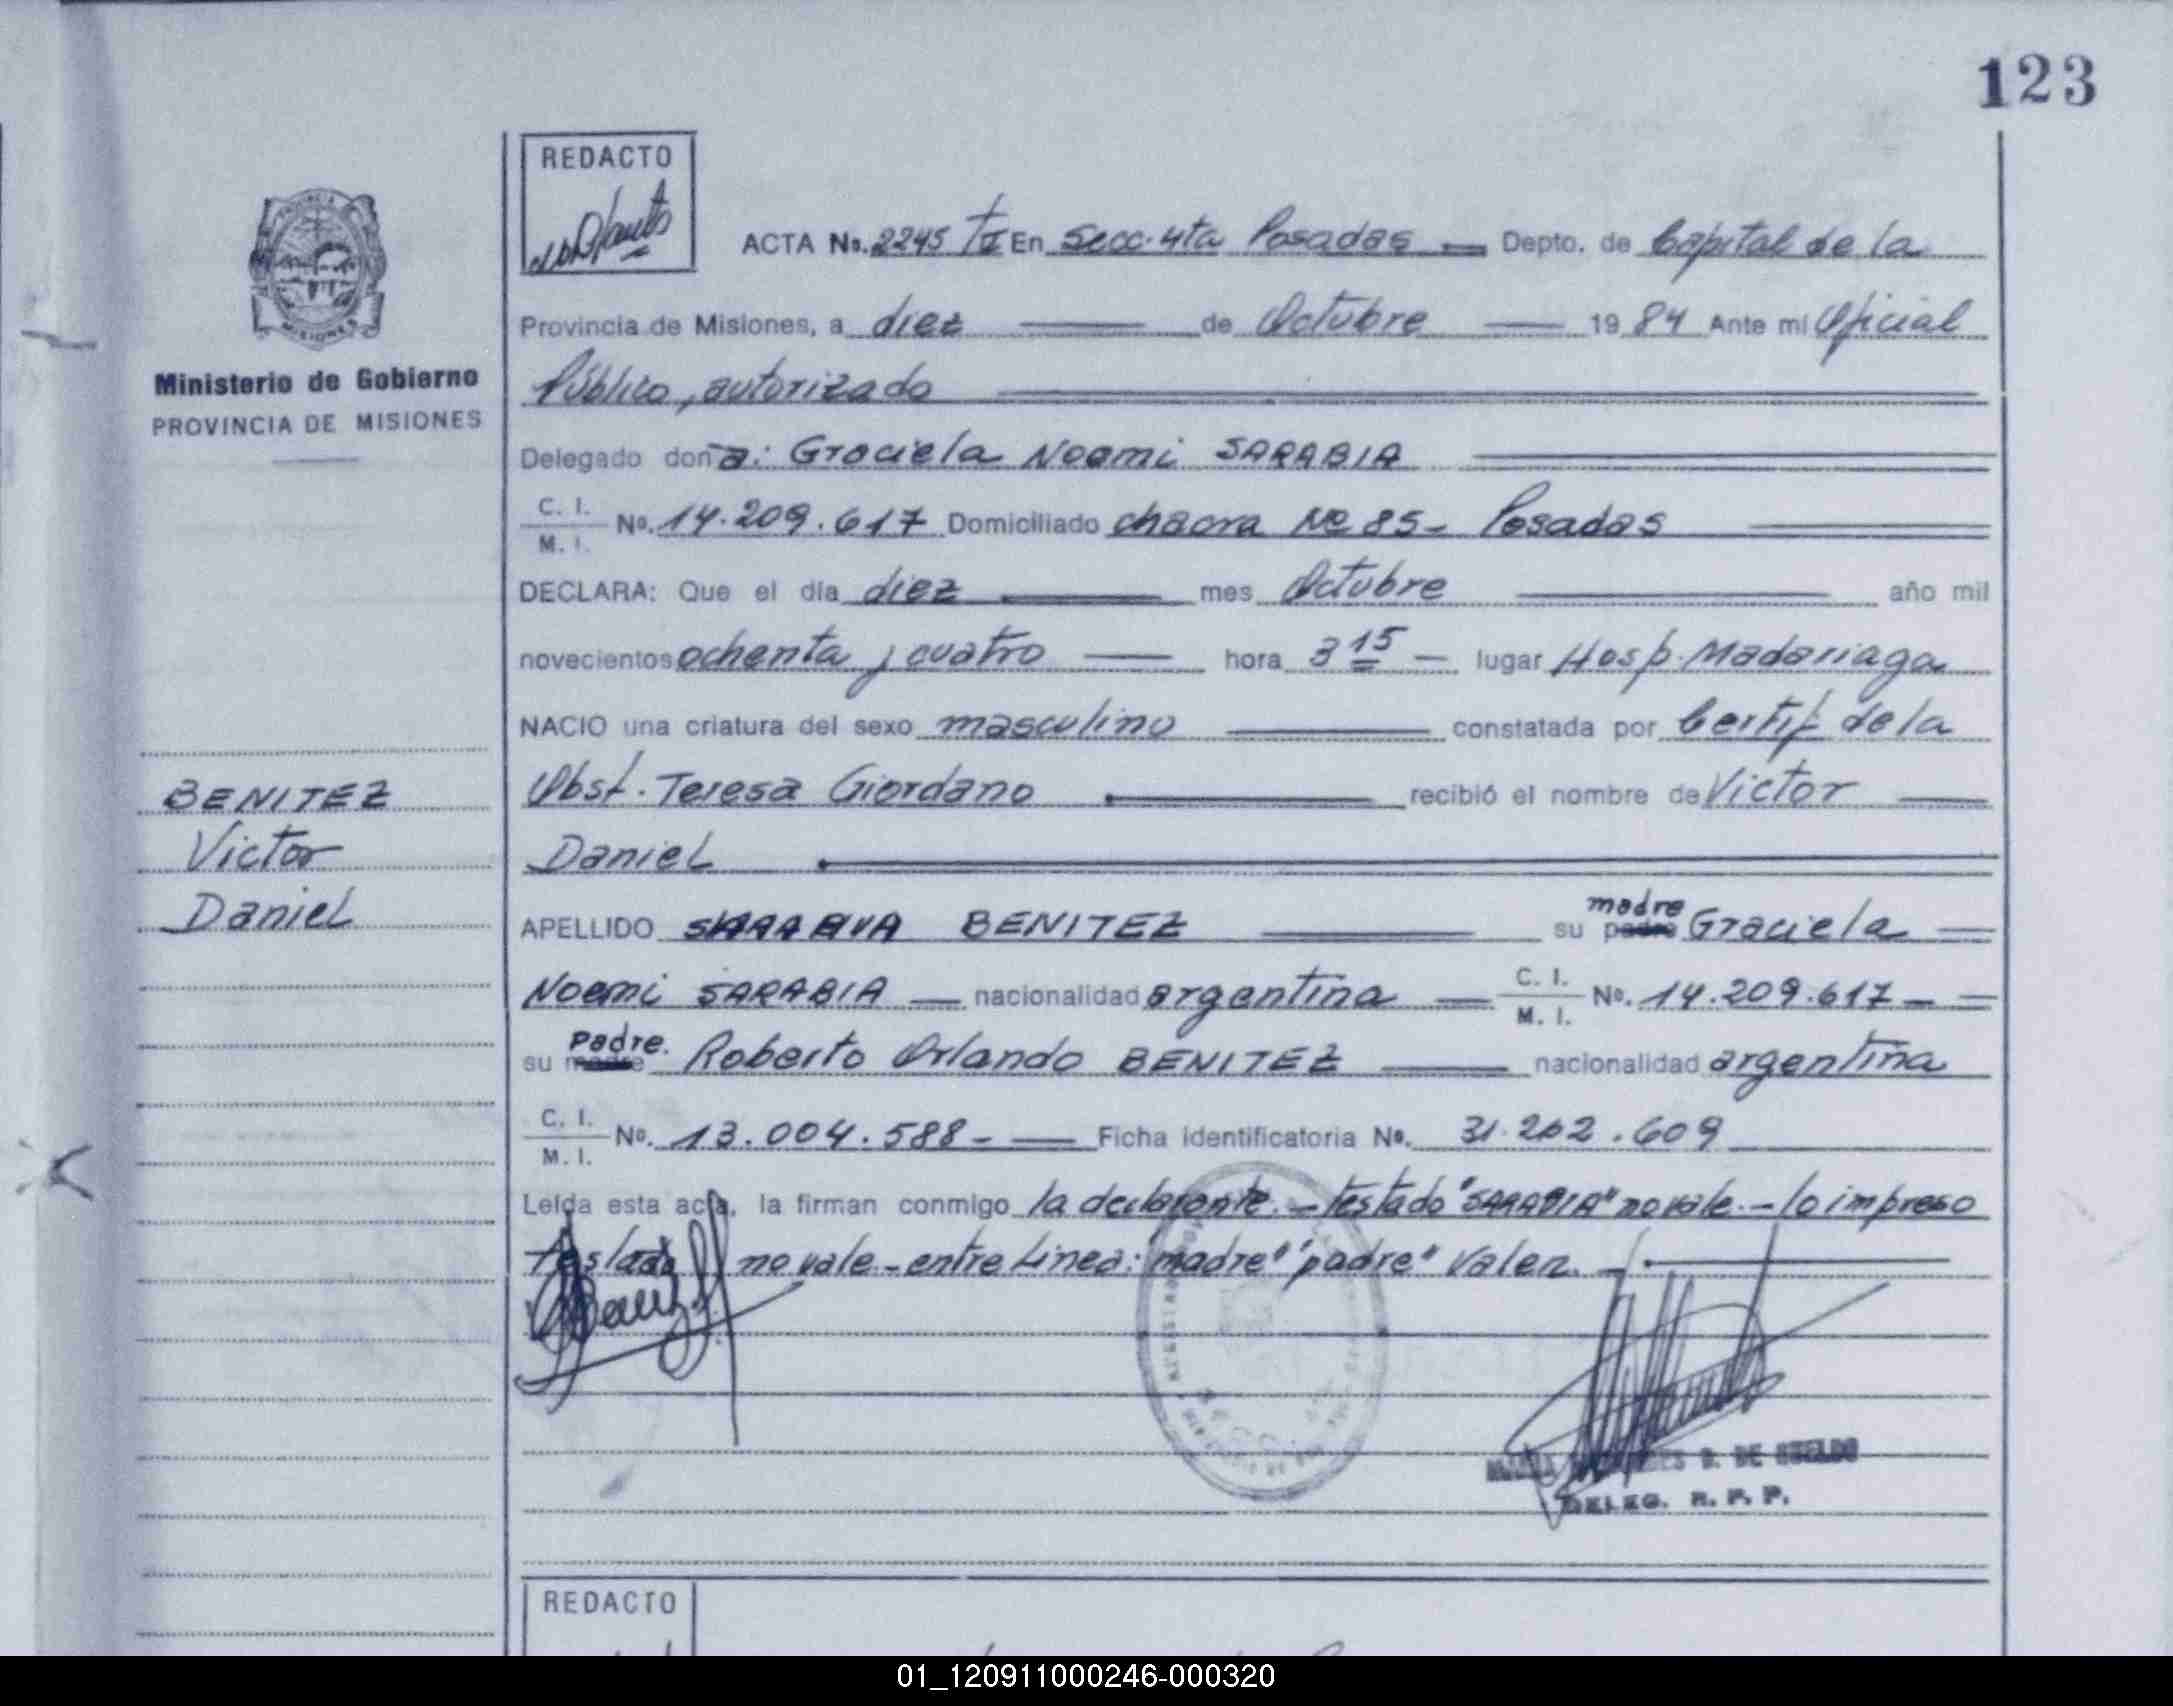 123
REDACTO
ACTA No. 2245 T II En Secc. 4ta Posadas Depto. de Capital de la
Provincia de Misiones, a diez de Octubre 1984 Ante mi Oficial
Público, autorizado
Ministerio de Gobierno
PROVINCIA DE MISIONES
Delegado don a: Graciela Noemi SARABIA
C. I.
M. I.
No. 14.209.617 Domiciliado chacra No 85- Posadas
DECLARA: Que el día diez mes Octubre año mil
novecientos ochenta y cuatro hora 3 15 lugar Hosp. Madariaga
NACIO una criatura del sexo masculino constatada por Certif. de la
Obst. Teresa Giordano recibió el nombre de Victor
Daniel
BENITEZ
Victor
Daniel
APELLIDO SARABIA BENITEZ su padre madre Graciela
Noemi SARABIA nacionalidad argentina C. I. M. I. No. 14.209.617
su madre Padre. Roberto Orlando BENITEZ nacionalidad argentina
C. I.
M. I.
No. 13.004.588- Ficha identificatoria No. 31.202.609
Leída esta acta, la firman conmigo la declarante.- testado "SARABIA" no vale.- lo impreso
testado no vale - entre Linea: "madre" "padre" Valen.
DE SUELDO
DELEG. R. P. P.
REDACTO
01_120911000246-000320